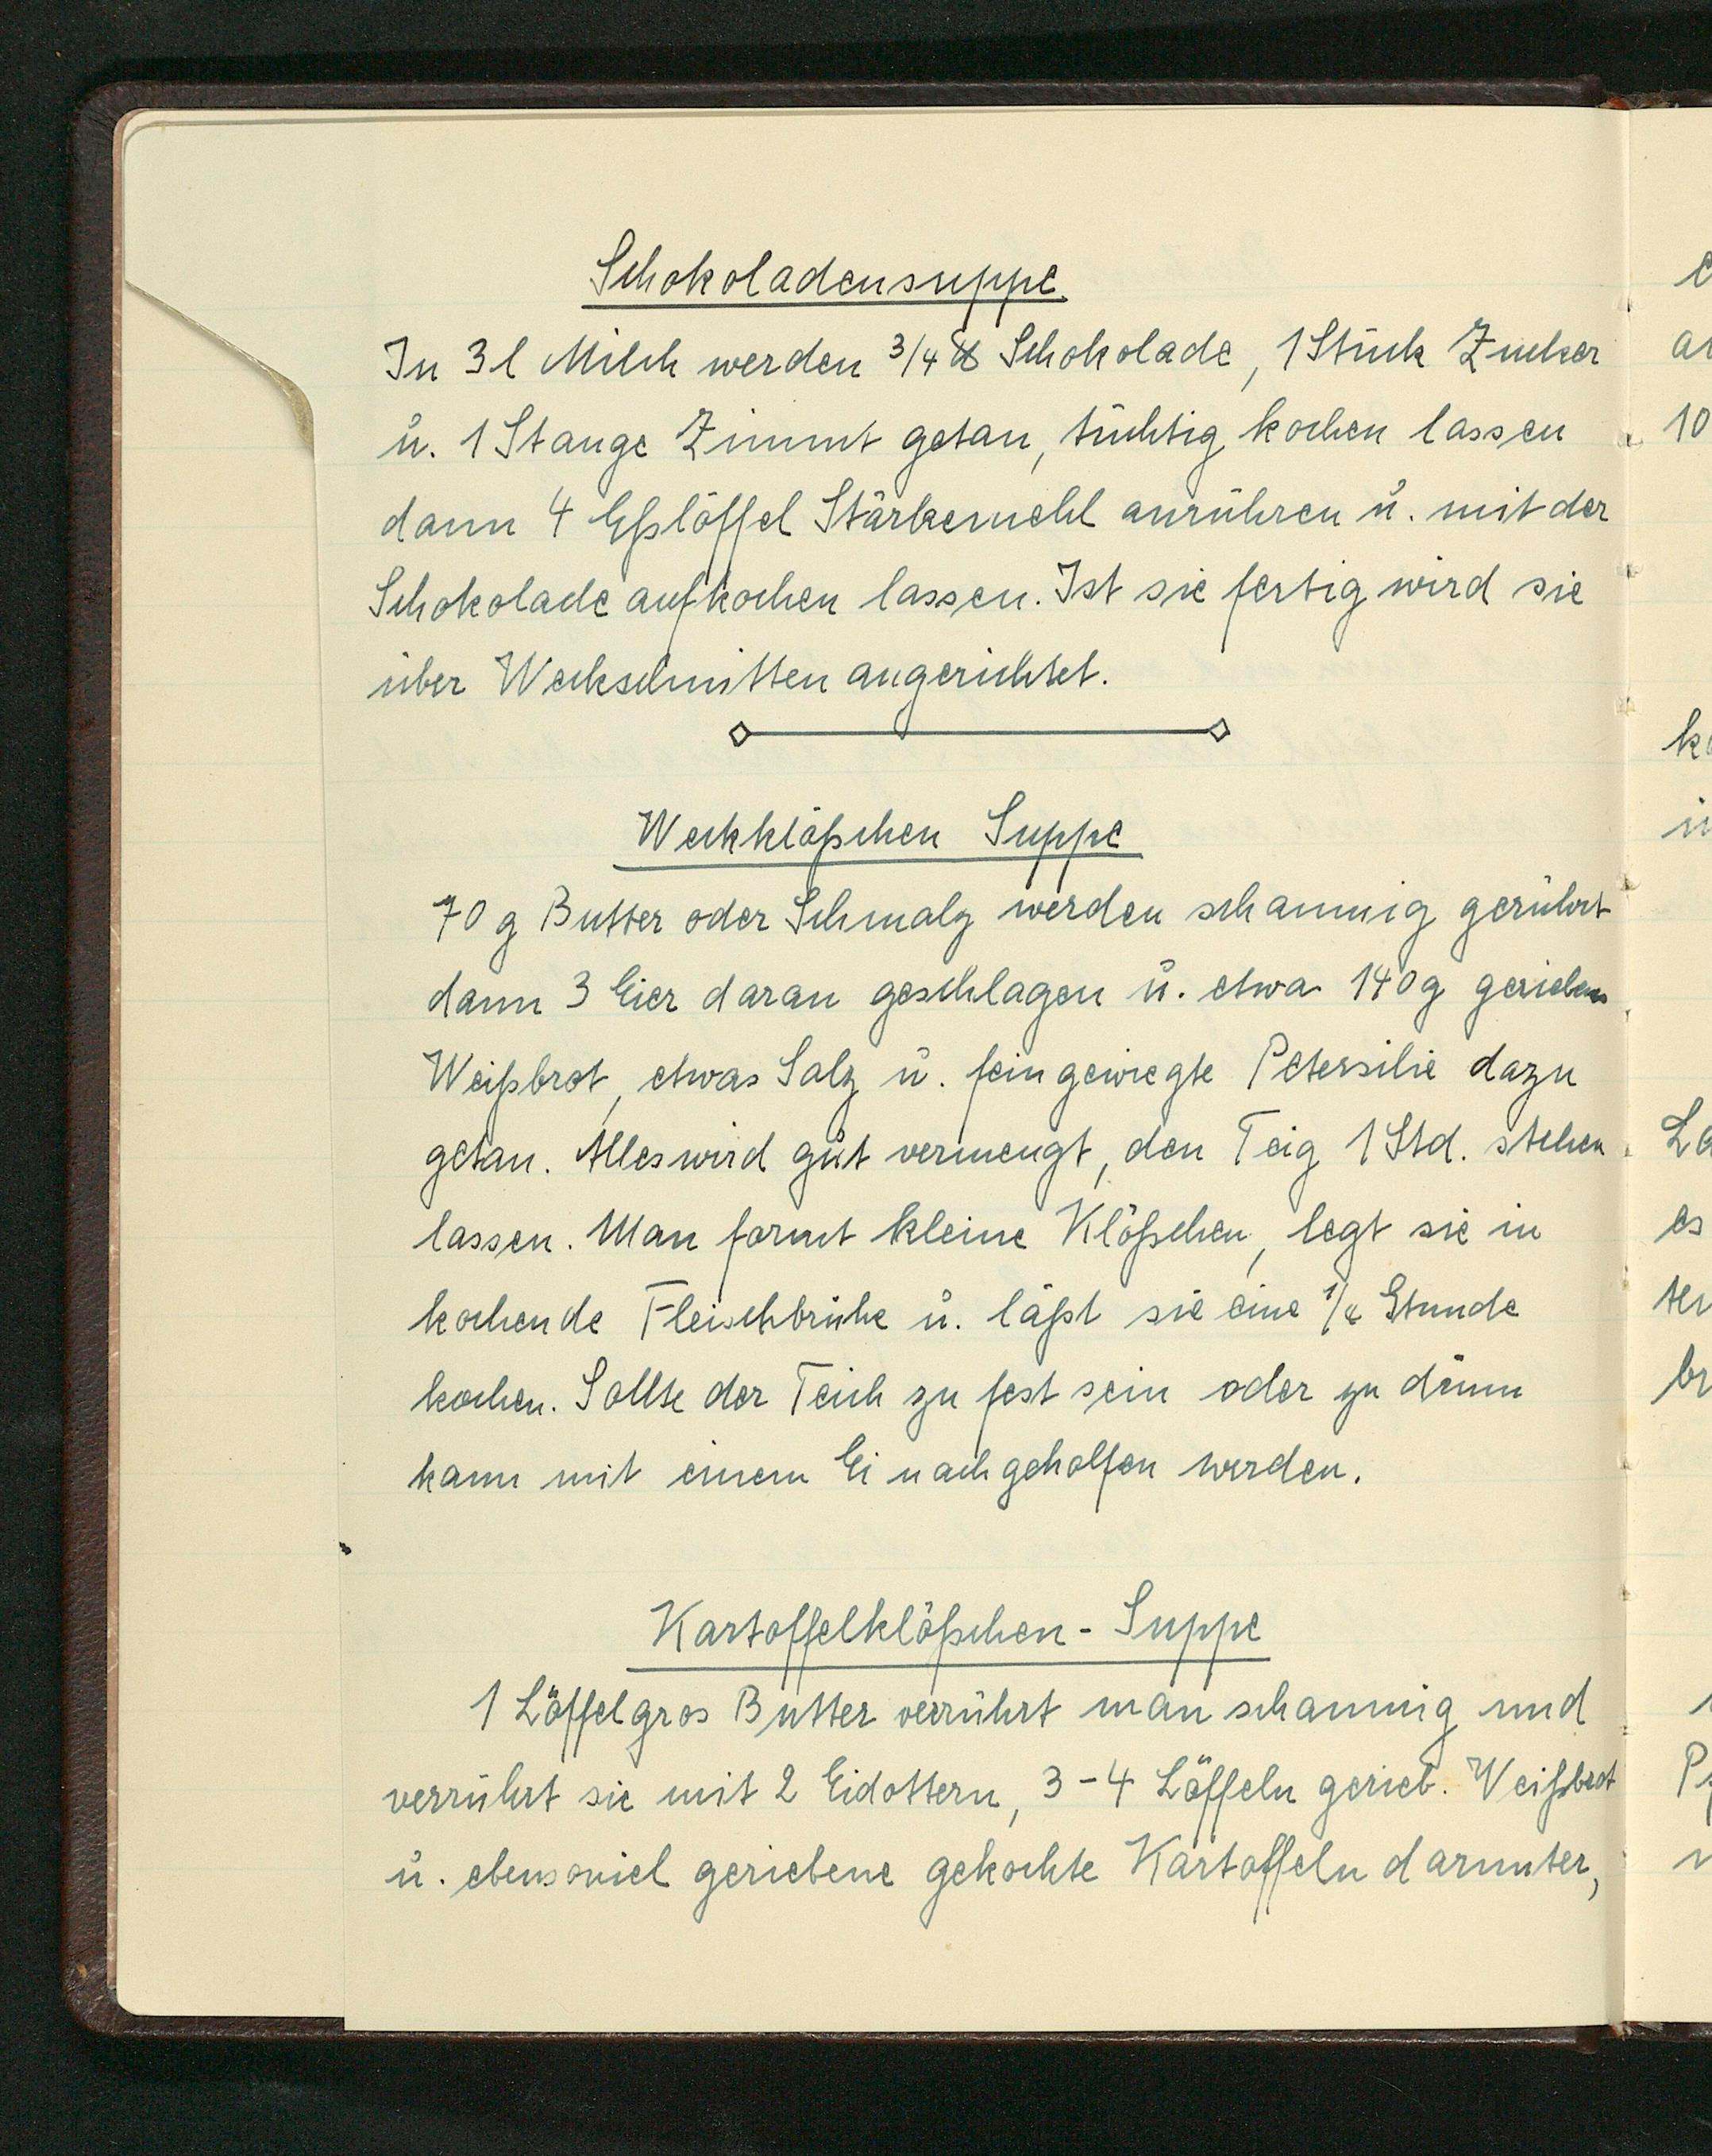 Schokoladensuppe.
In 3 l Milch werden 3/4 ℔ Schokolade, 1 Stück Zucker
u. 1 Stange Zimmt getan, tüchtig kochen lassen
dann 4 Eßlöffel Stärkemehl anrühren u. mit der
Schokolade aufkochen lassen. Ist sie fertig wird sie
über Weckschnitten angerichtet.
Weckklößchen Suppe
70 g Butter oder Schmalz werden schaumig gerührt
dann 3 Eier daran geschlagen u. etwa 140 g gerieben
Weißbrot, etwas Salz u. fein gewiegte Petersilie dazu
getan. Alles wird gut vermengt, den Teig 1 Std. stehen
lassen. Man formt kleine Klößchen, legt sie in
kochende Fleischbrühe u. läßt sie eine 1/4 Stunde
kochen. Sollte der Teich zu fest sein oder zu dünn
kann mit einem Ei nachgeholfen werden.
Kartoffelklößchen - Suppe
1 Löffel gros Butter verrührt man schaumig und
verrührt sie mit 2 Eidottern, 3 - 4 Löffeln gerieb. Weißbrot
u. ebensoviel geriebene gekochte Kartoffeln darunter,